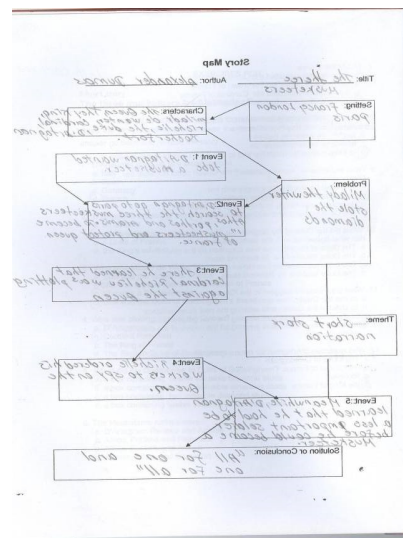 Story Map
Title: The three Author: Alexander Dumas
Musketeers
Setting: France, London
Paris
Characters: the Queen, the King,
milady de wenter, cardinal
Richelie, the duke, D'artagnan
Event 1: D'artagnan wanted
to be a musketeer.
Problem:
Milady the winter
stole the
diamonds
Event2: D'artagnan go to Paris
to search the three musketeers
athos, porthos and aramis to become
musketeers and protect queen
of france.
Event:3
there he learned that
Cardinal Richelieu was plotting
against the Queen
Theme: short story
narration
Event:4 Richelie ordered his
workes to spy on the
Queen.
Event: 5: Meanwhile, D'artagnan
learned that he had to be
a less important soldier
before he could become a
Musketeer.
Solution or Conclusion:
"All For one and
one For all"